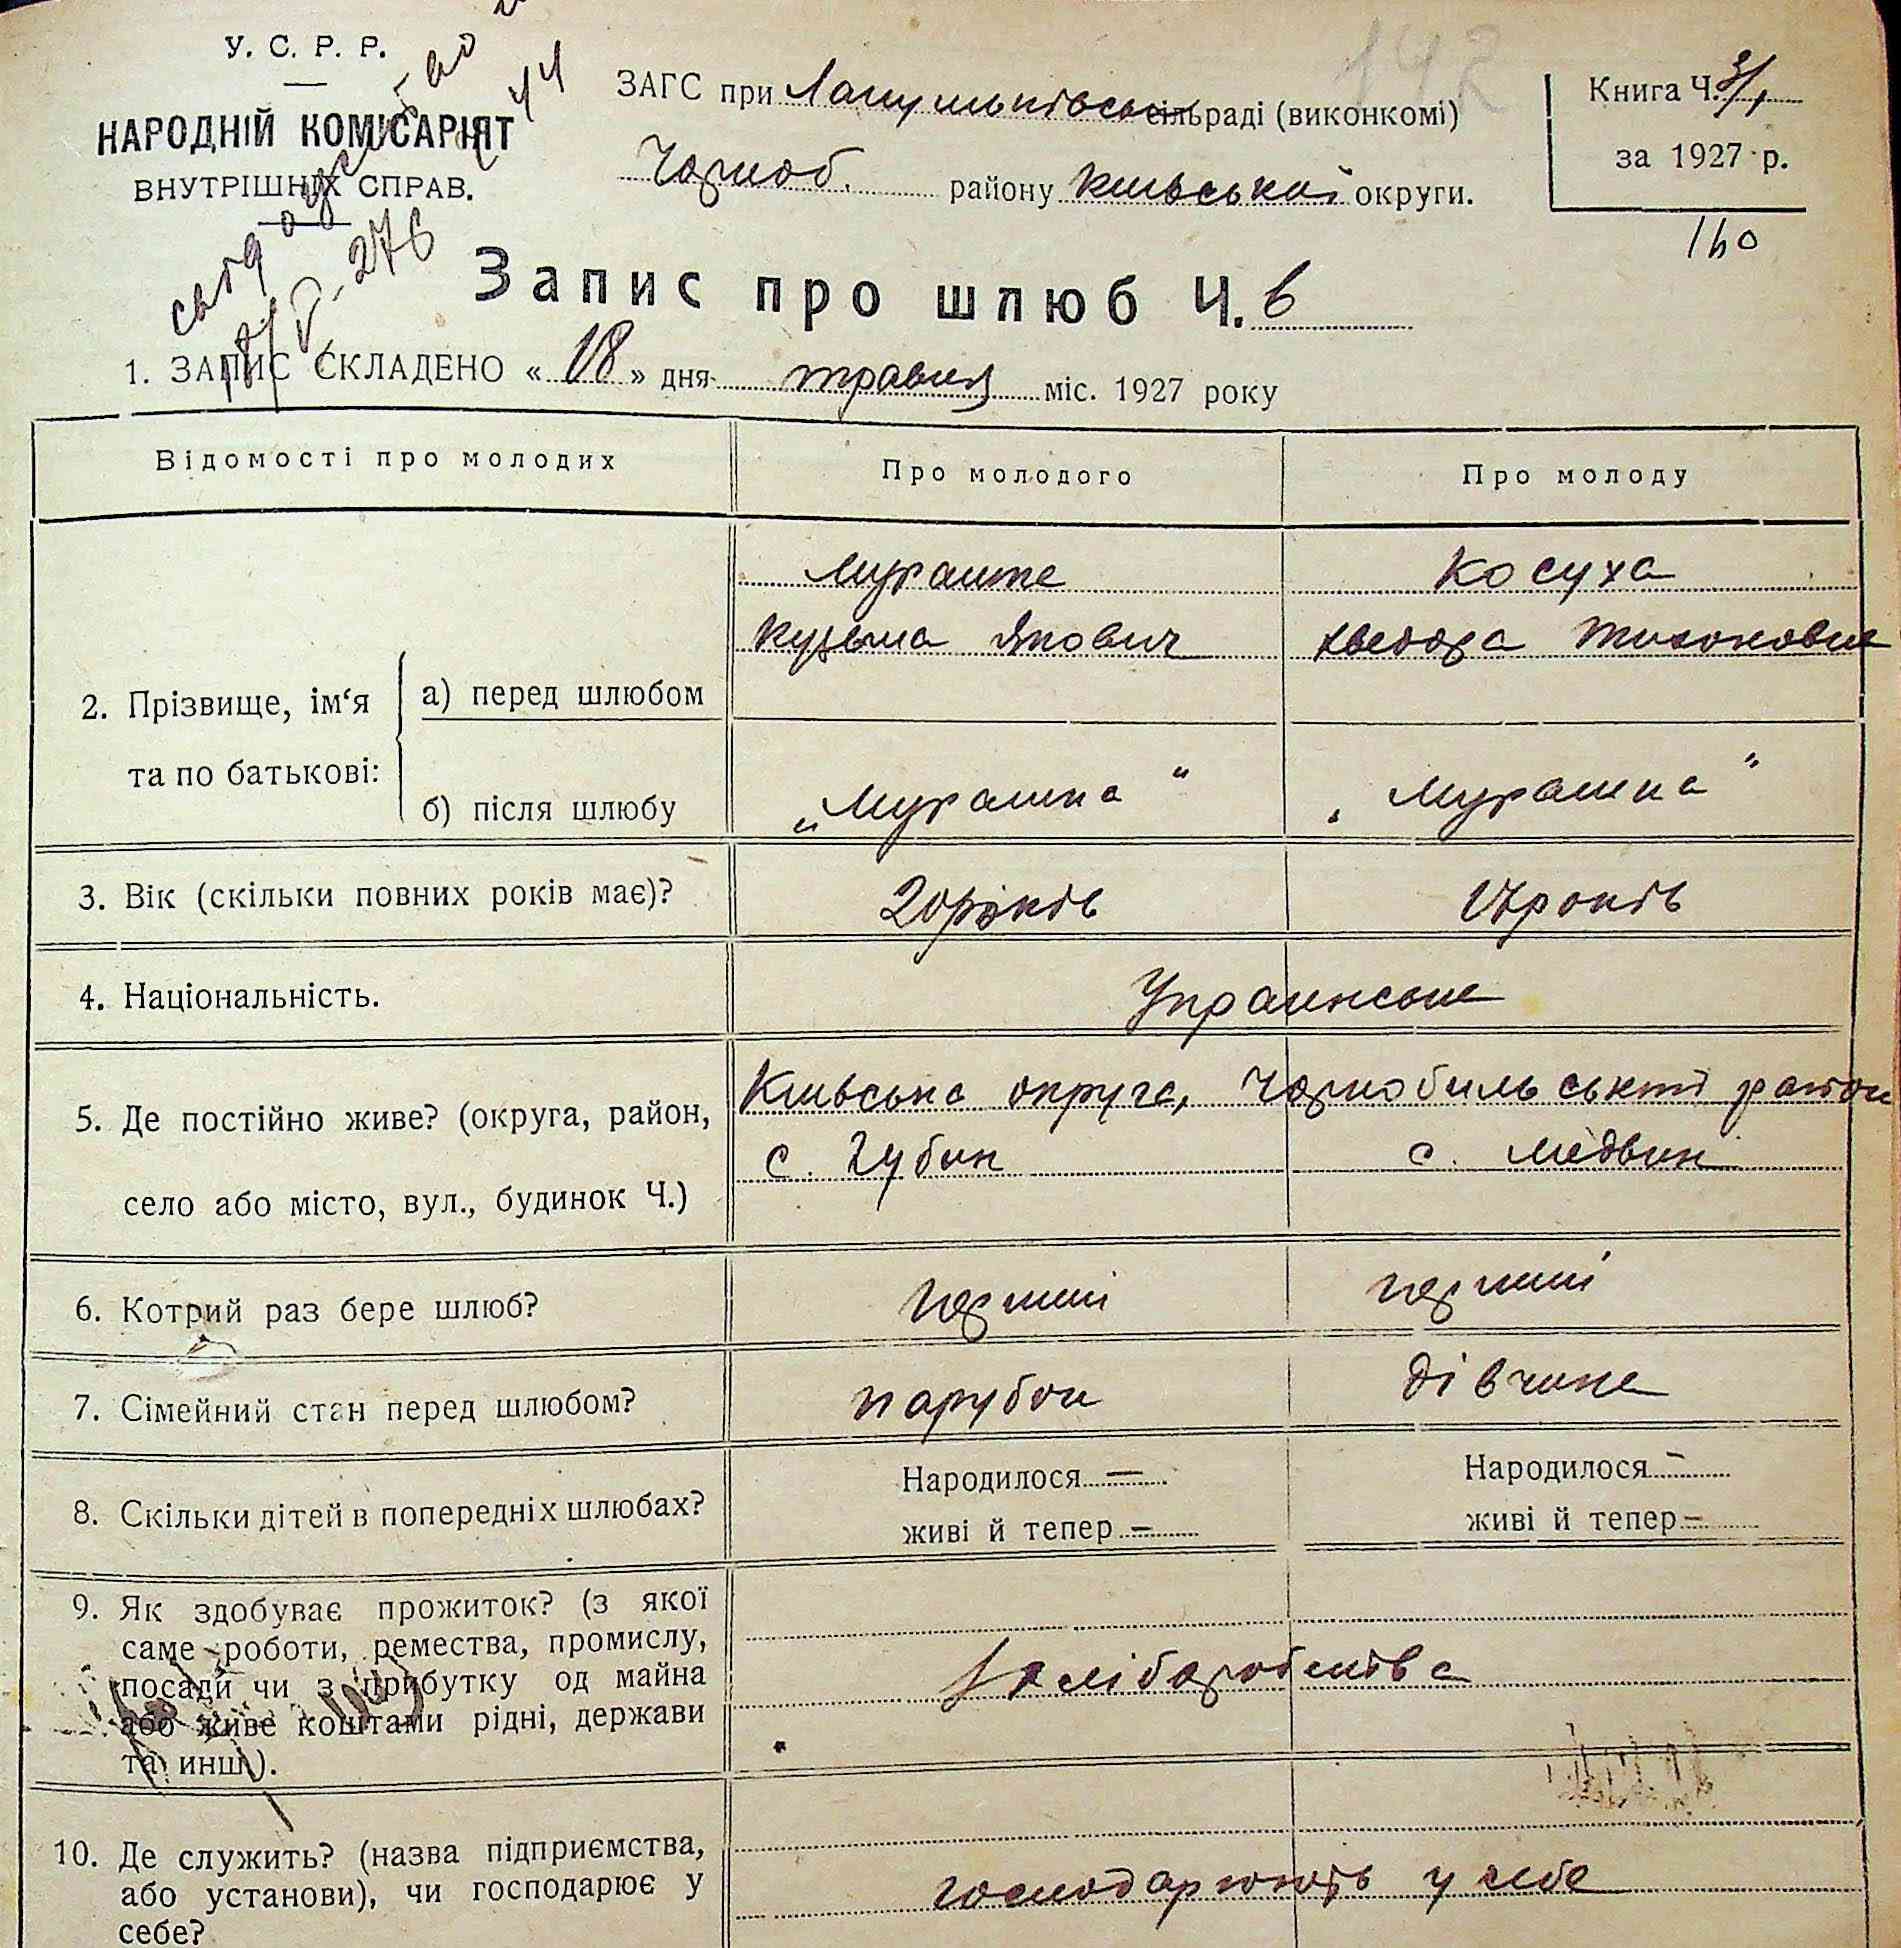 У. С. Р. Р.
НАРОДНІЙ КОМІСАРІЯТ
ВНУТРІШНІХ СПРАВ.
142
ЗАГС при сільраді (виконкомі)
Чорноб. району Київської округи.
Книга Ч. 3/1
за 1927 р.
160
Запис про шлюб Ч. 6
1. ЗАПИС СКЛАДЕНО « 18 » дня травня міс. 1927 року
Відомості про молодих
Про молодого
Про молоду
2. Прізвище, ім'я та по батькові:
а) перед шлюбом
Мурашко
Кузьма Якович
Косуха
Хведора Тихоновна
б) після шлюбу
„Мурашка“
„Мурашка“
3. Вік (скільки повних років має)?
20 років
17 років
4. Національність.
Украинське
5. Де постійно живе? (округа, район,
село або місто, вул., будинок Ч.)
Київська округа, Чорнобильський район
с. Губин
с. Медвин
6. Котрий раз бере шлюб?
перший
перший
7. Сімейний стан перед шлюбом?
парубок
дівчина
8. Скільки дітей в попередніх шлюбах?
Народилося —
живі й тепер —
Народилося —
живі й тепер —
9. Як здобуває прожиток? (з якої
саме роботи, ремества, промислу,
посади чи з прибутку од майна
або живе коштами рідні, держави
та инш.).
З хліборобства
10. Де служить? (назва підприємства,
або установи), чи господарює у
себе?
господарюють у себе